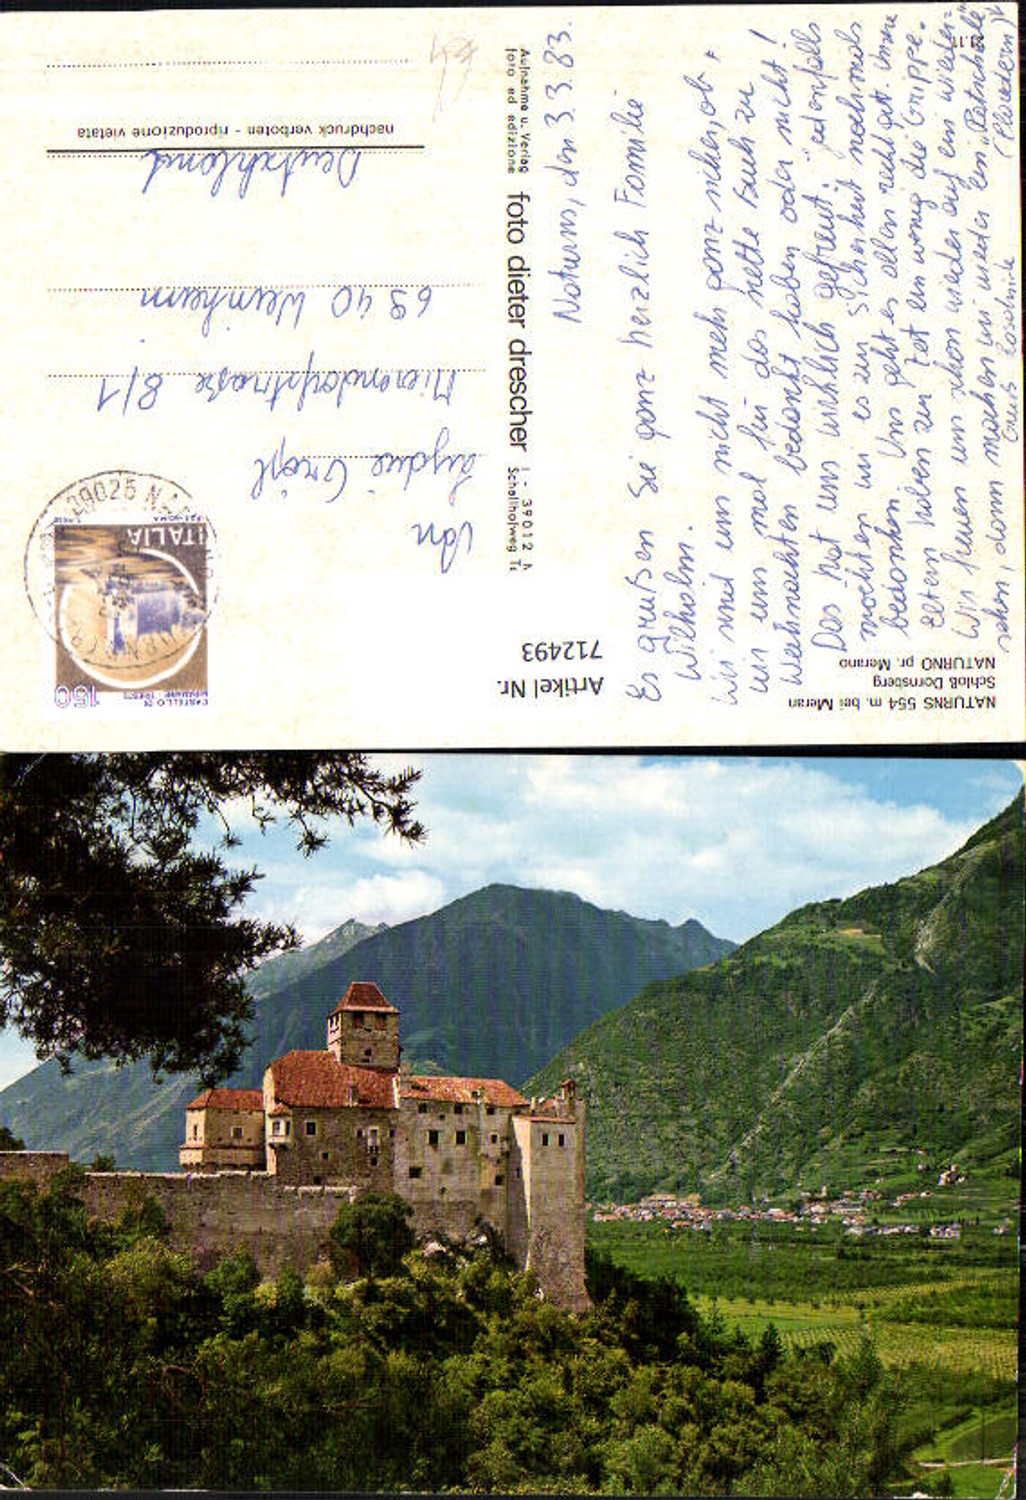 NATURNS 554 m. bei Meran
Schloß Dornsberg
NATURNO pr. Merano
Artikel Nr.
712493
Naturns, den 3.3.83.
Es grüßen Sie ganz herzlich Familie
Wilhalm.
Wir sind uns nicht mehr ganz sicher, ob
wir uns mal für das nette Buch zu
Weihnachten bedankt haben oder nicht!
Das hat uns wirklich gefreut, jedenfalls
möchten wir es zur Sicherheit nochmals
bedanken. Uns geht es allen recht gut. Unsere
Eltern haben zur Zeit ein wenig die Grippe.
Wir freuen uns schon wieder auf ein wieder-
sehn, dann machen wir wieder ein
(Plaudern)
Gruß
foto dieter drescher
Aufnahme u. Verlag
foto ed edizione
I - 39012
Schallhofweg
CASTELLO DI
MIRAMARE TRIESTE
150
ITALIA
39025
An
Lydie
8/1
6940 Weinheim
Deutschland
nachdruck verboten - riproduzione vietata